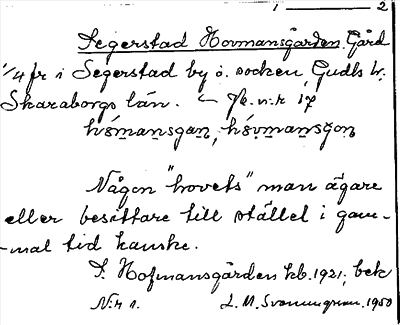 1 ——— 2
Segerstad Hovmansgården. Gård
1/4 fr i Segerstad by o. socken, Gudh hr.
Skaraborgs län. nr 17
Någon "hovets" man ägare
eller besittare till stället i gam-
-mal tid kanske.
Hofmansgården kb. 1921; bek
N:r 1. L. M. Svenungsson. 1950